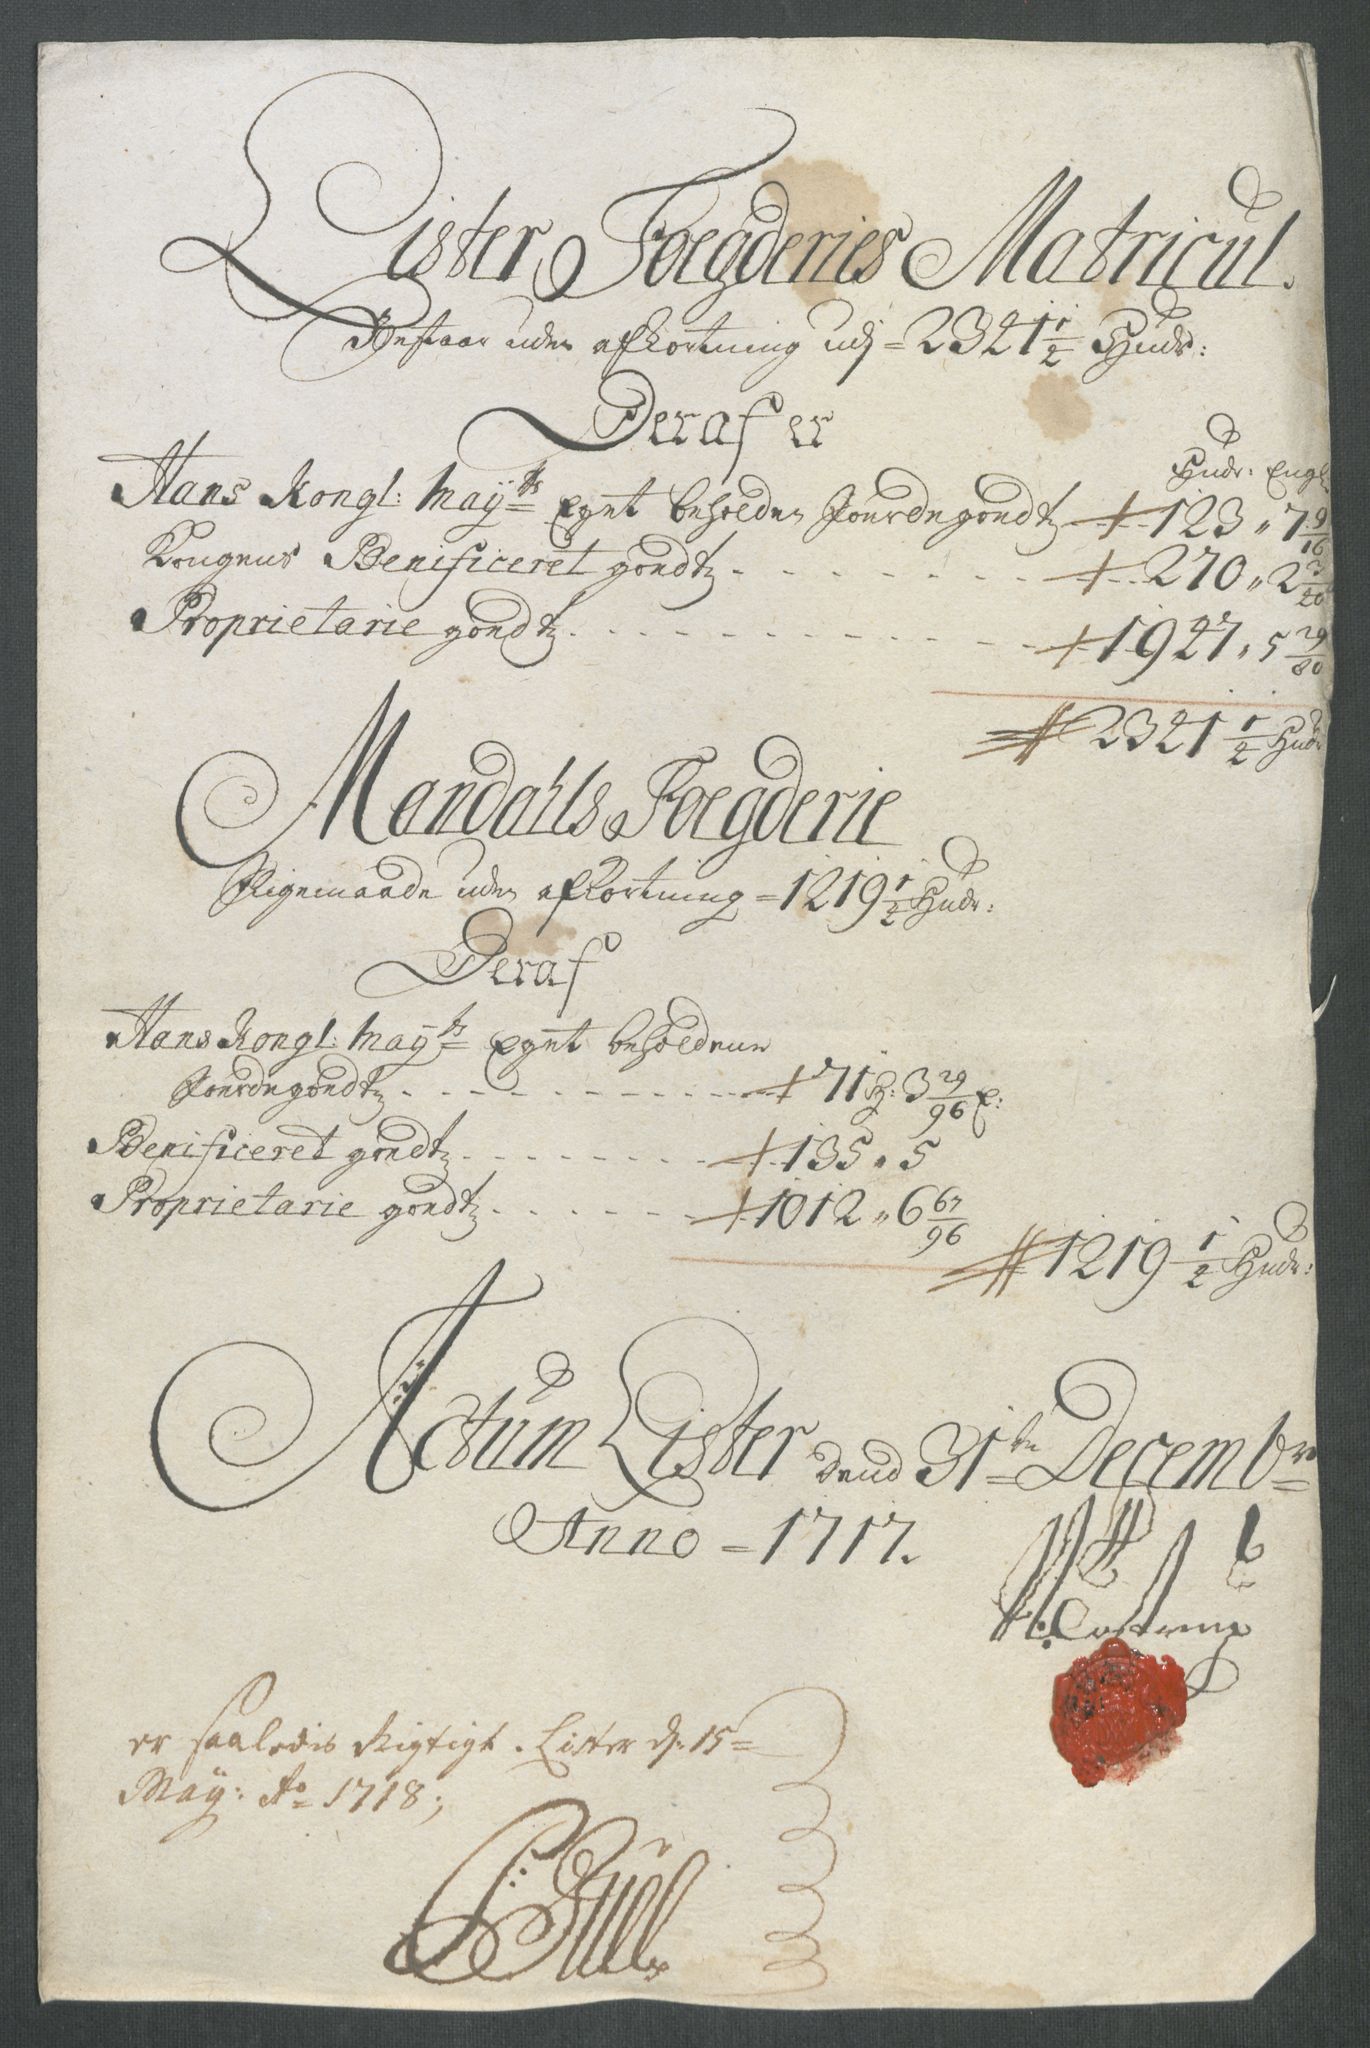 Lister Foegderies Matricul.
Bestaar uden afkortning udj = 2321 1/2 Hudr:
Deraf er
Hudr: Engl
Hans Kongl: May\ts Eget beholden Jourdegoudtz 123 " 7 9/16
Kongens Benificeret goudtz 270 " 2 3/20
Proprietarie goudtz 1927 " 5 29/80
2321 1/2 Hudr
Mandahls Foegderie
Ligemaade uden afkortning = 1219 1/2 Hudr:
Deraf
Hans Kongl: May\ts Eget beholdene
Jourdegoudtz 71 H: 3 29/96 E:
Benificeret goudtz 135 " 5
Proprietarie goudtz 1012 " 6 67/96
1219 1/2 Hudr:
Actum Lister dend 31te Decembr
Anno = 1717.
er saaledis Rigtigt. Lister d: 15
May: Ao 1718;